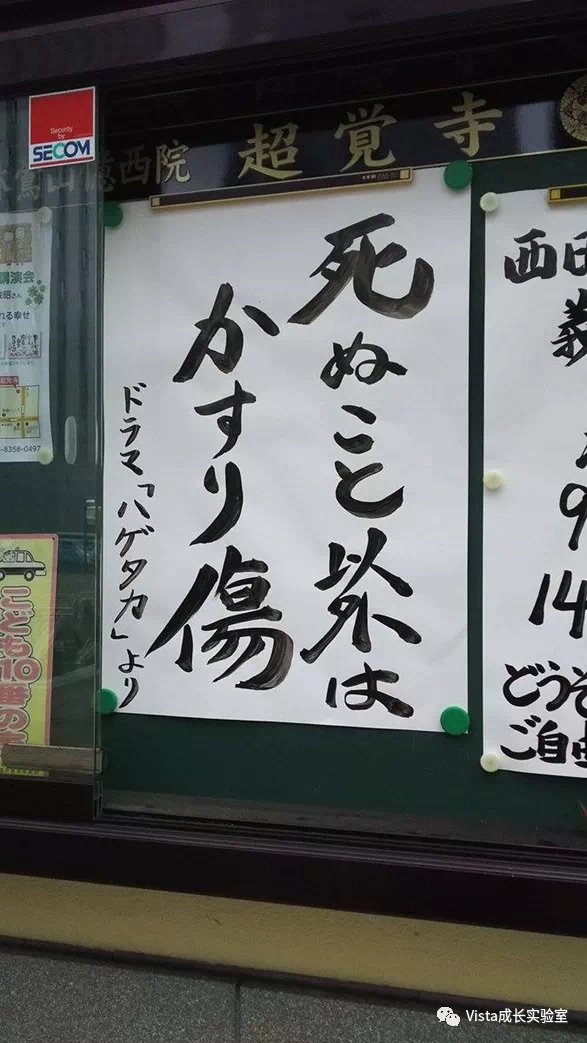 Security
by
SECOM
山徳西院
超覚寺
死ぬこと以外は
かすり傷
ドラマ「ハゲタカ」より
講演会
れる幸せ
-8358-0497
こども110番の
西
義
9
14
どうぞ
ご自由
Vista成长实验室